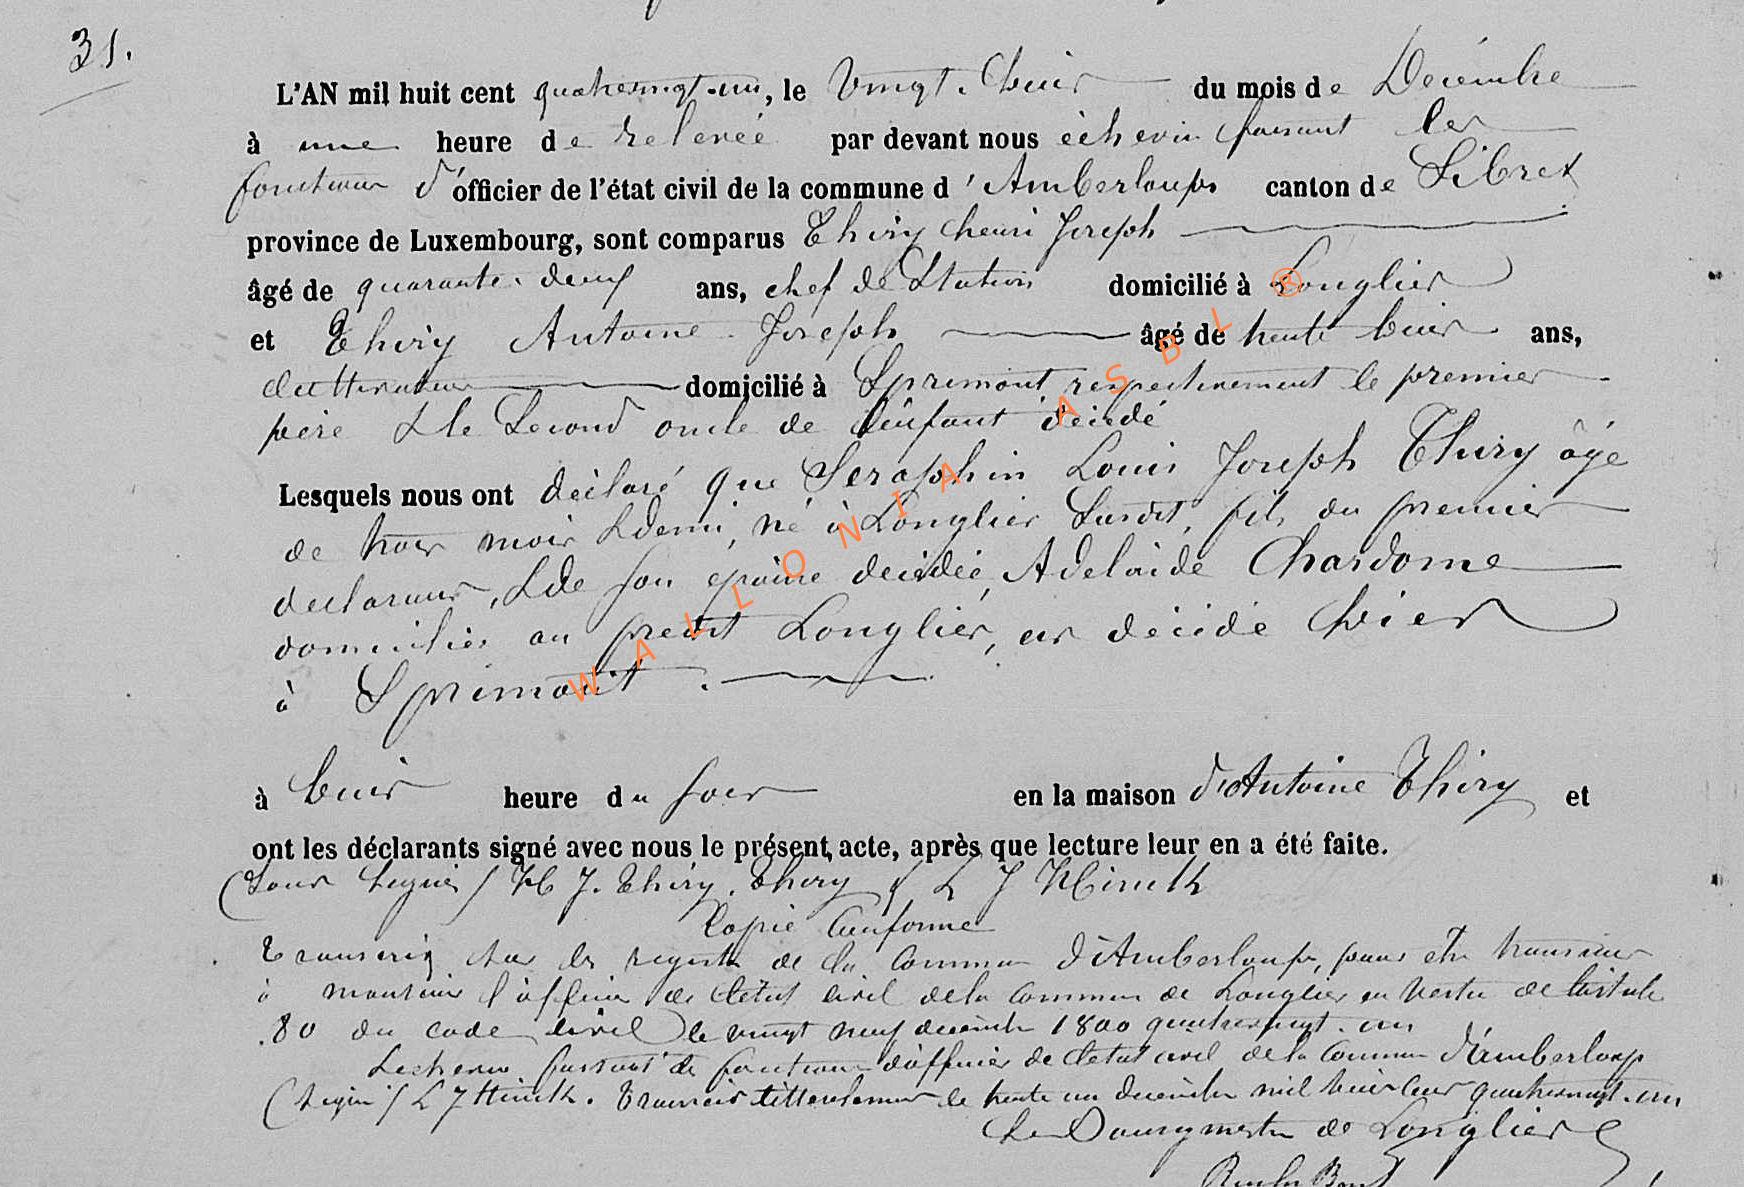 31.
L'AN mil huit cent quatrevingt-un, le Vingt-huit du mois de Décembre
à une heure de relevée par devant nous échevin faisant les
fonctions d'officier de l'état civil de la commune d'Amberloup canton de Sibret
province de Luxembourg, sont comparus Thiry henri Joseph
âgé de quarante-deux ans, chef de Station domicilié à Longlier
et Thiry Antoine Joseph âgé de trente huit ans,
cultivateur domicilié à Sprimont respectivement le premier
père & le Second oncle de l'enfant décédé
Lesquels nous ont déclaré que Seraphin Louis Joseph Thiry âgé
de trois mois & demi, né à Longlier Susdit, fils du premier
declarant, & de son épouse décédée, Adelaïde Chardome
domiciliés au predit Longlier, est décédé hier
à Sprimont.
à huit heure du soir en la maison d'Antoine Thiry et
ont les déclarants signé avec nous le présent acte, après que lecture leur en a été faite.
(Sous signés / H J. Thiry. Thiry & L J
Copie Conforme
Transcris sur les registre de la Commune d'Amberloup, pour etre transmise
à monsieur l'officier de l'état civil de la Commune de Longlier en vertu de l'article
80 du code civil le vingt neuf décembre 1800 quatrevingt-un
L'echevin faisant les fonctions d'officier de l'état civil de la Commune d'Amberloup
(Signé / L J Transcris littéralement le trente un décembre mil huit cent quatrevingt-un
Le Bourgmestre de Longlier
WALLONIA ASBL ®